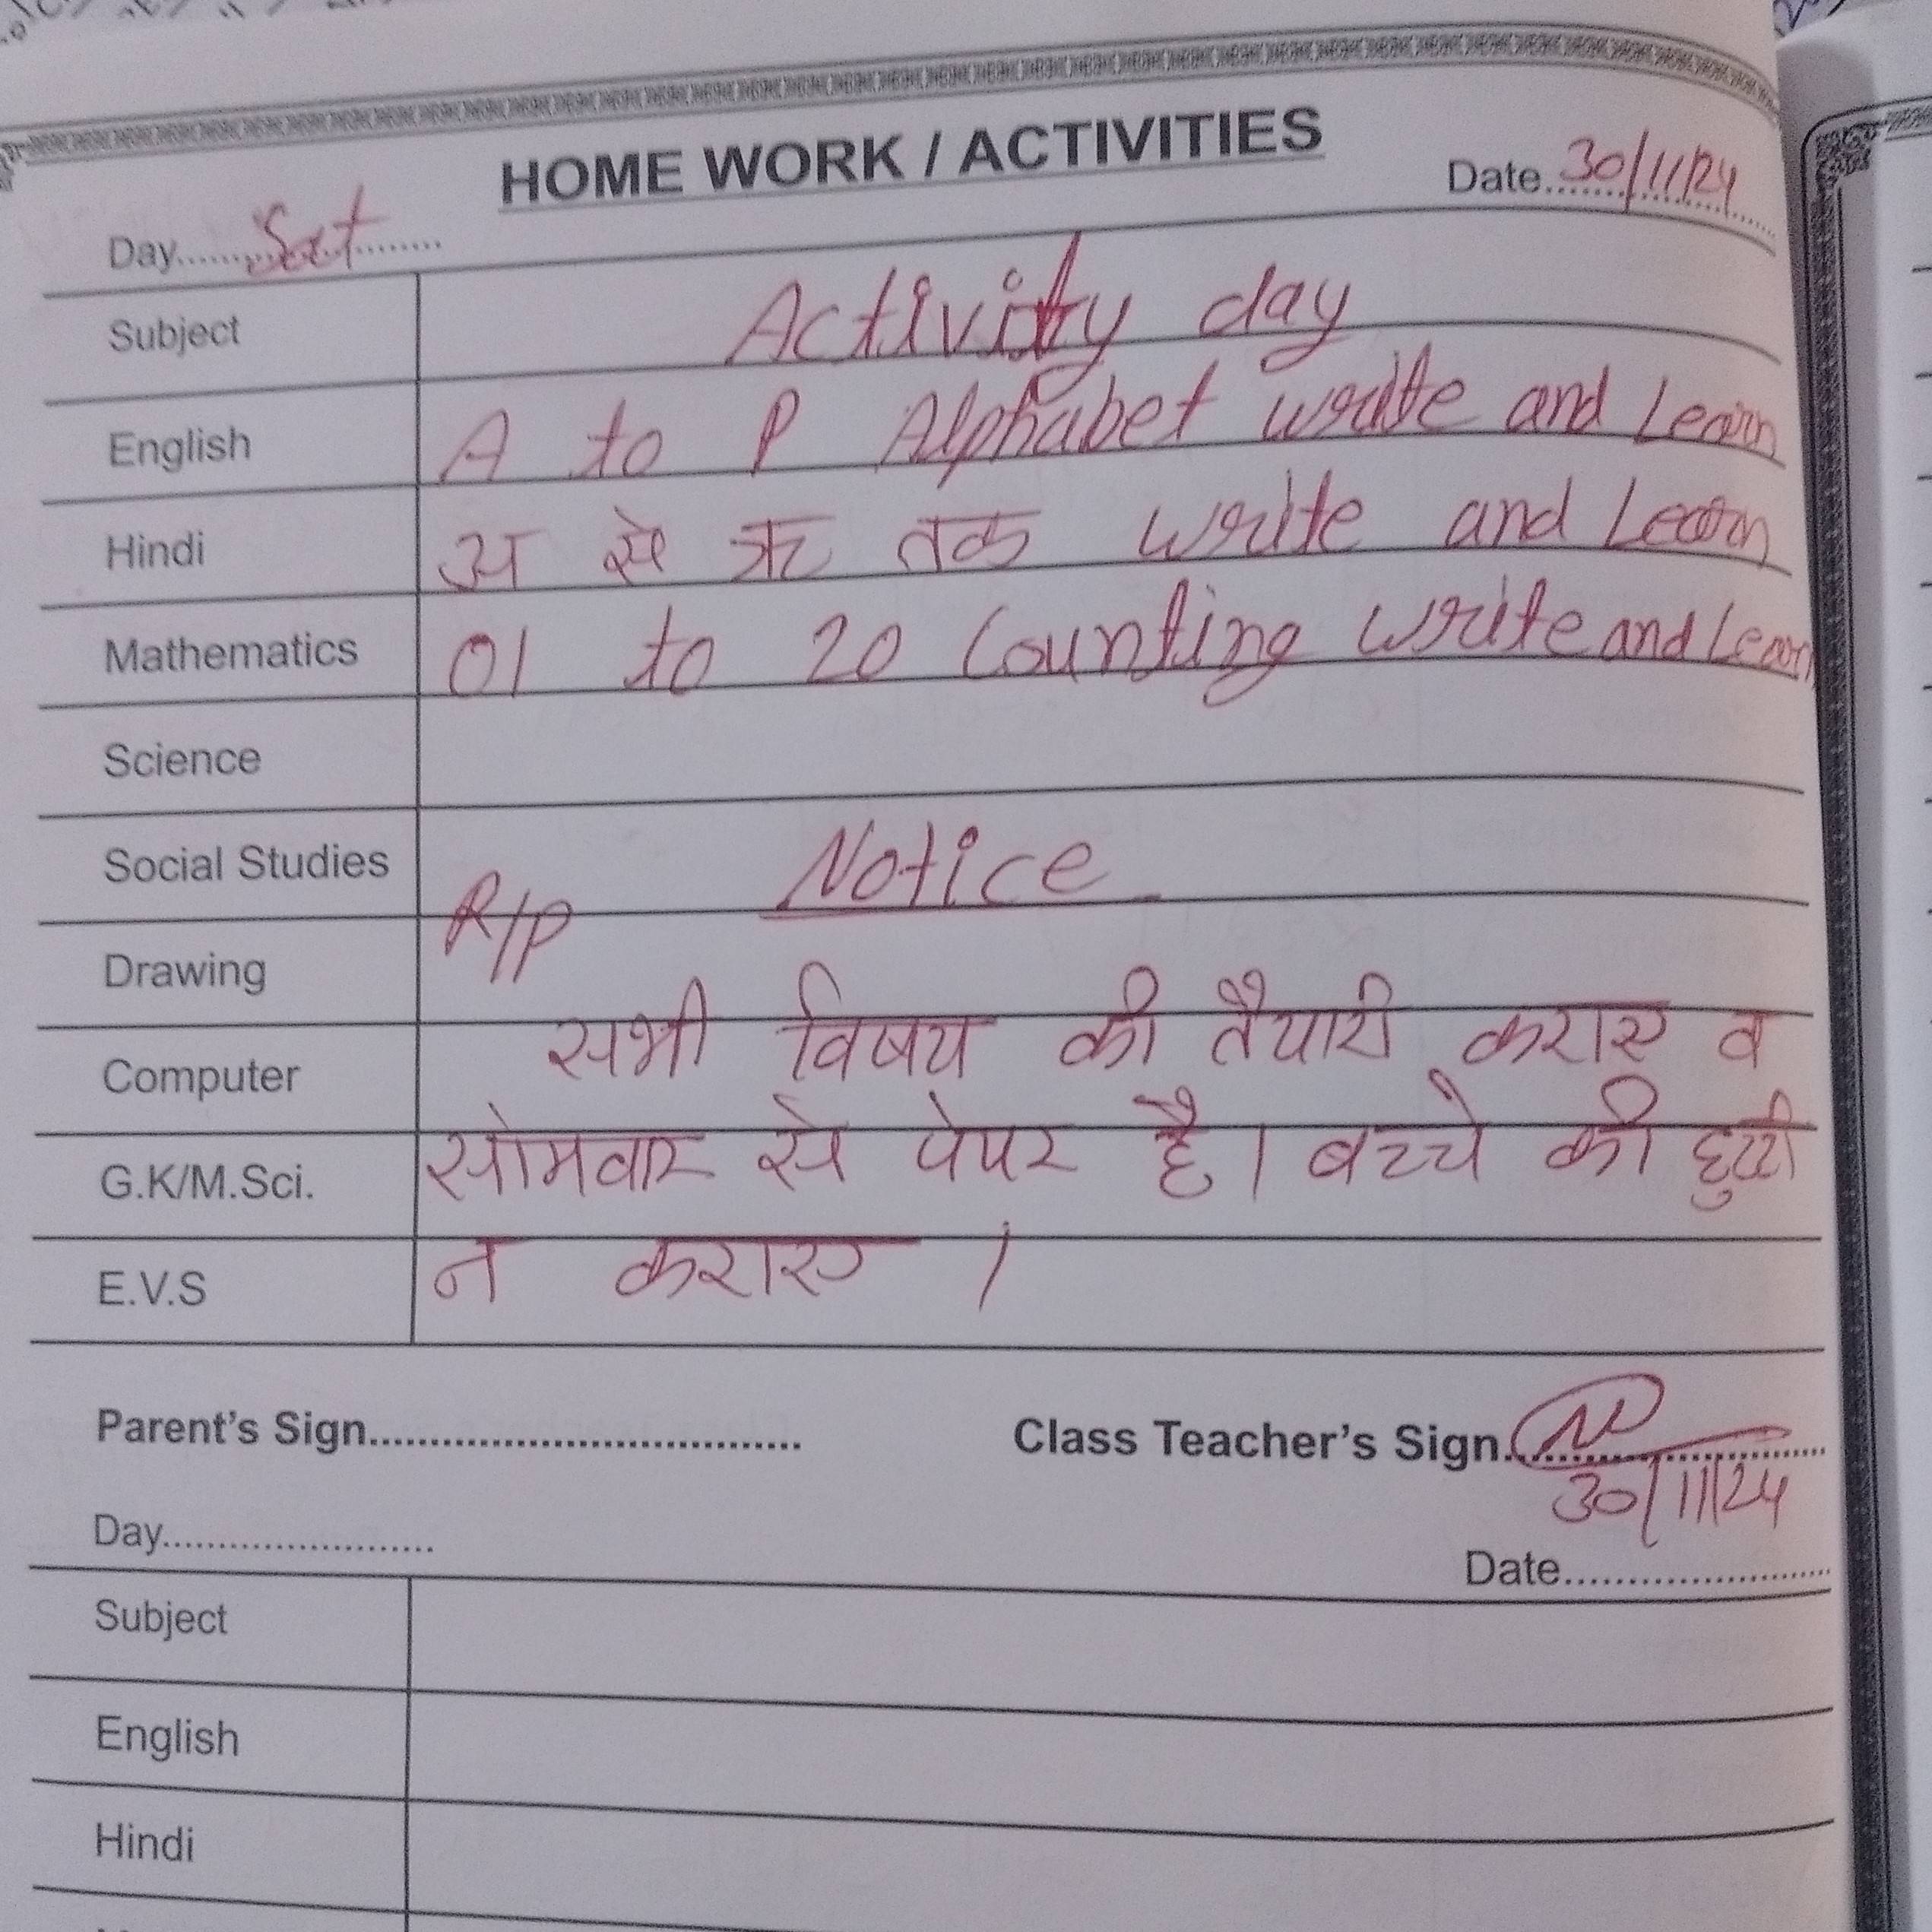 HOME WORK / ACTIVITIES
Day..........Sat.......... Date..........30/11/24
Subject Activity day
English A to P Alphabet write and Learn
Hindi अ से ऋ तक write and Learn
Mathematics 01 to 20 Counting write and Learn
Science
Social Studies Notice
R/P
Drawing
सभी विषय की तैयारी कराए व
Computer
सोमवार से पेपर है। बच्चे की छुट्टी
G.K/M.Sci.
न कराए ।
E.V.S
Parent's Sign.................................... Class Teacher's Sign..........................
30/11/24
Day........................ Date........................
Subject
English
Hindi